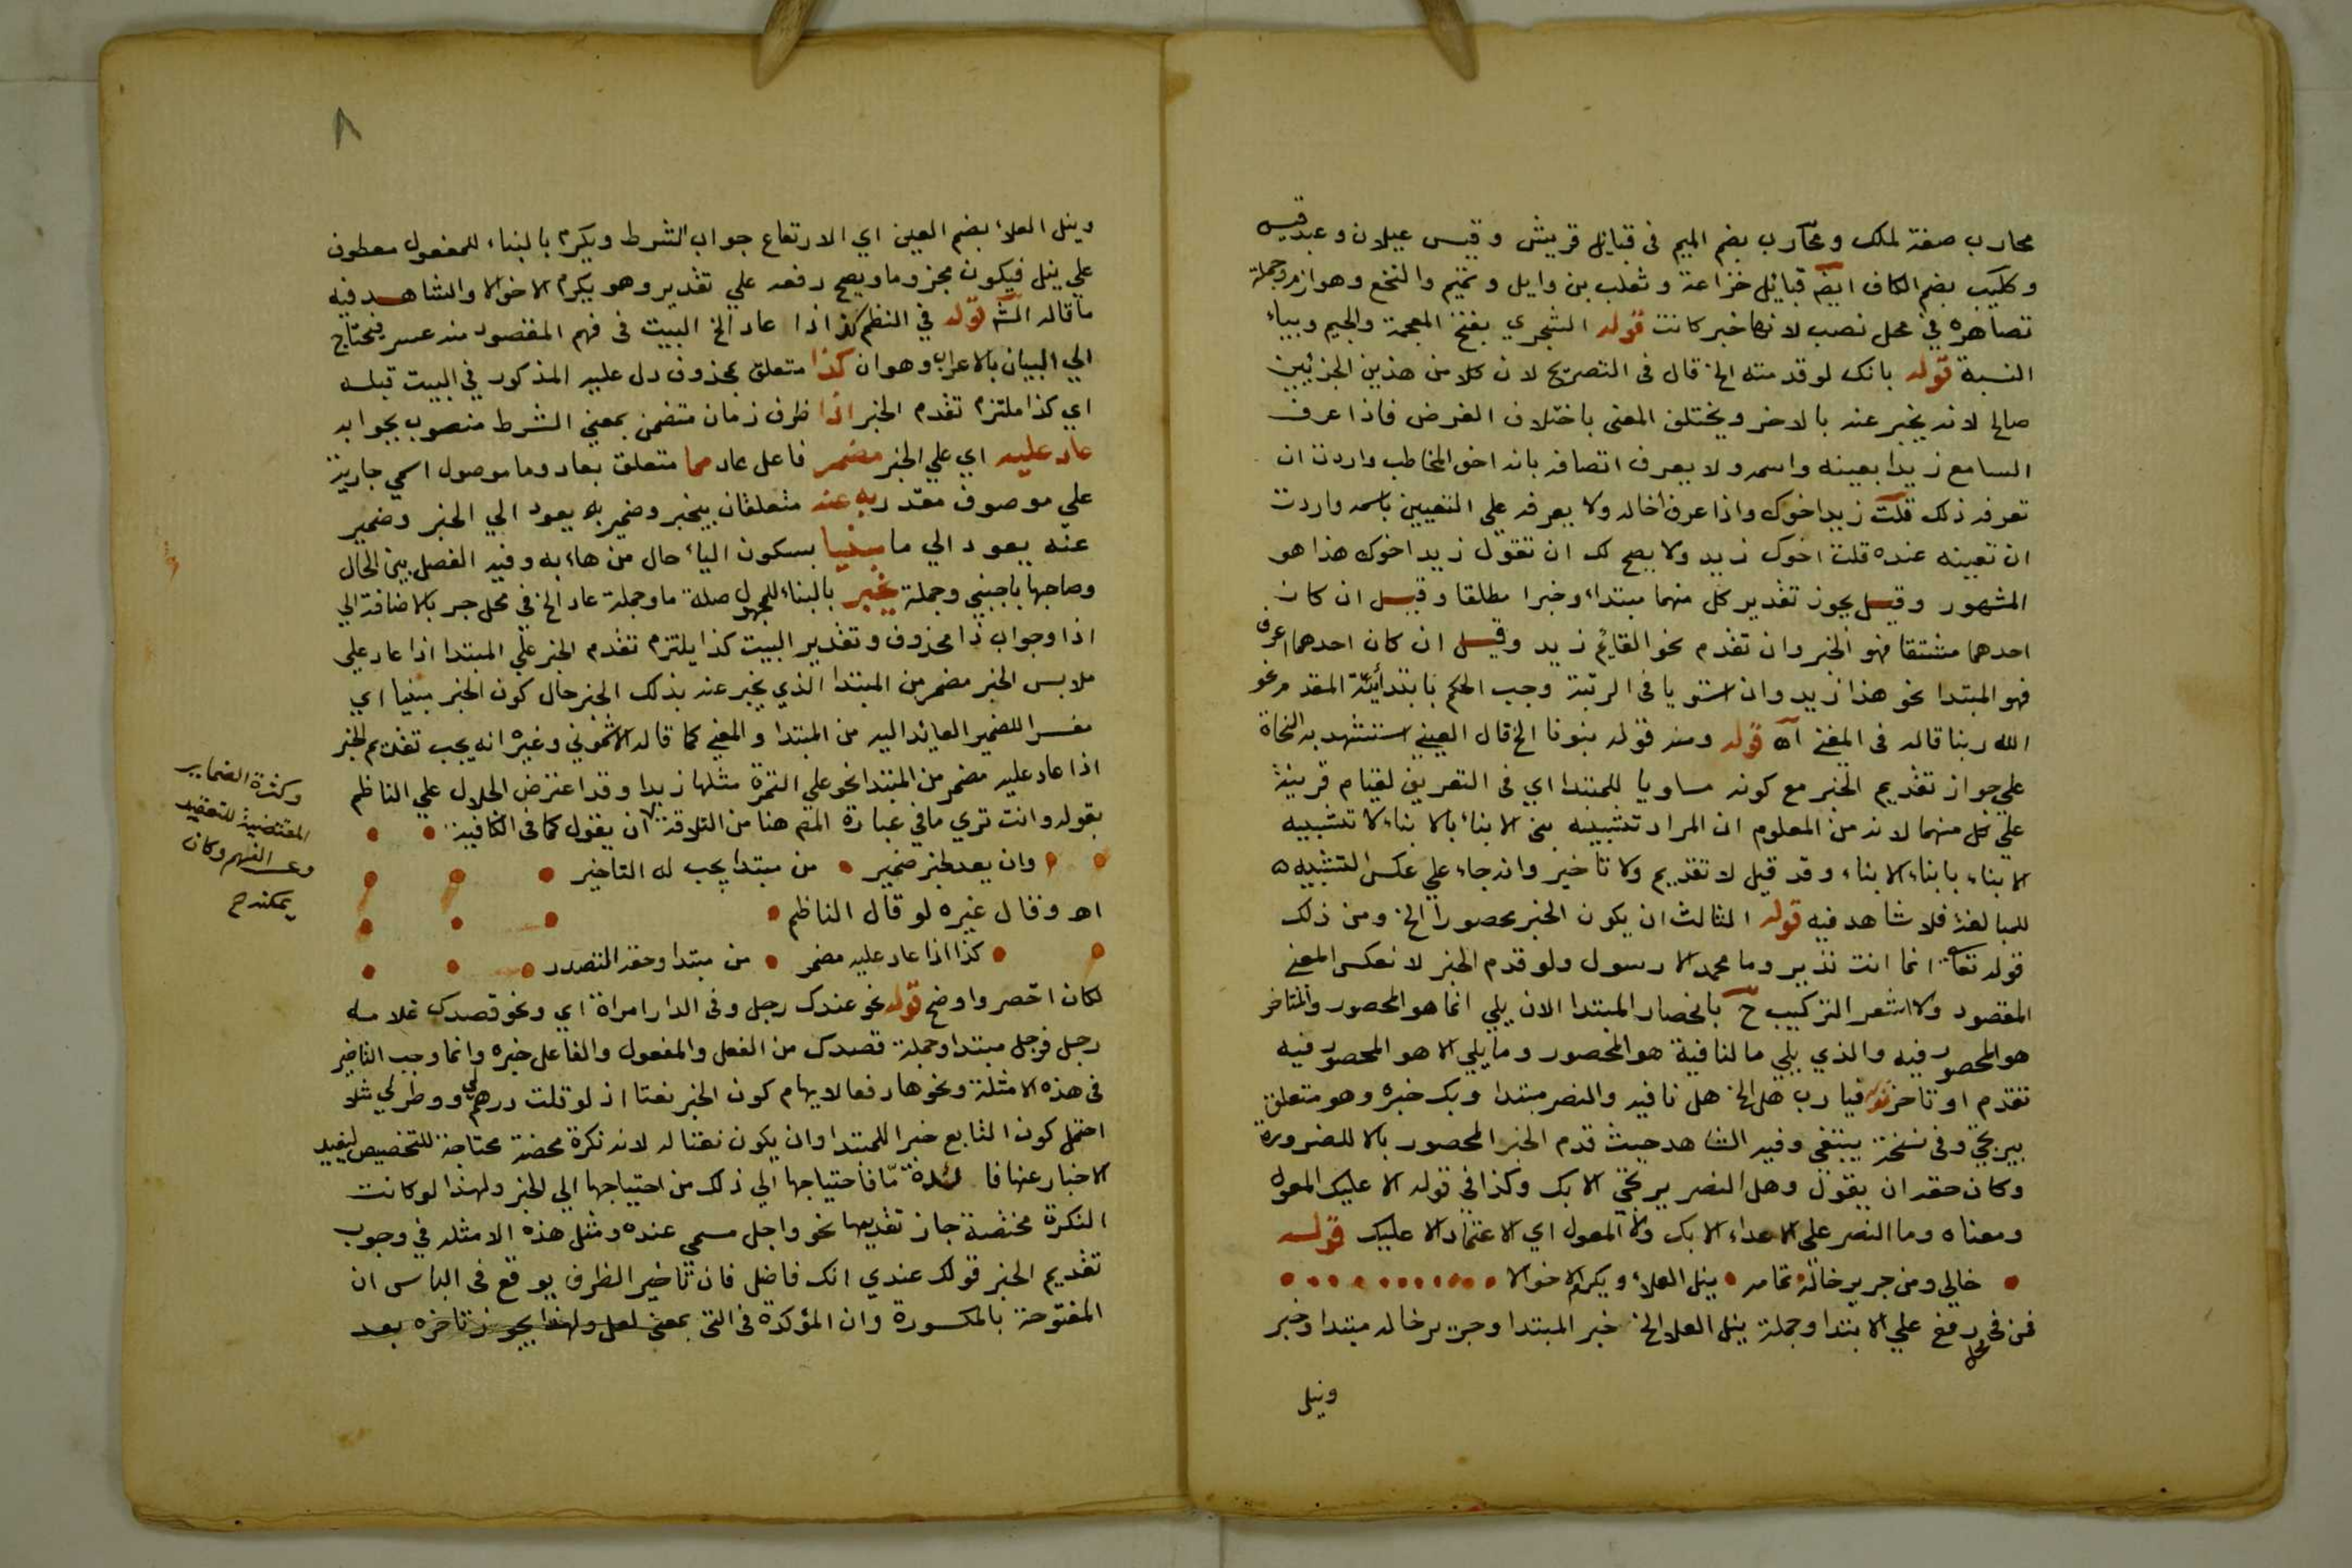 محارب صفة لملك ومحارب بضم الميم فى قبائل قريش وقيس عيلان وعبد قيس
وكليب بضم الكاف ايضا قبائل خزاعة وثعلب بن وايل وتميم والنخع وهوازن وجملة
تصاهره في محل نصب لانها خبر كانت قوله الشجري بفتح المعجمة والجيم وبياء
النسبة قوله بانك لو قدمته الخ قال فى التصريح لان كلا من هذين الجزئين
صالح لانه يخبر عنه بالاخر ويختلف المعنى باختلاف الغرض فاذا عرف
السامع زيدا بعينه واسمه ولا يعرف اتصافه بانه اخو المخاطب واردت ان
تعرفه ذلك قلت زيد اخوك واذا عرف اخا له ولا يعرفه علي التعيين باسمه واردت
ان تعينه عنده قلت اخوك زيد ولا يصح لك ان تقول زيد اخوك هذا هو
المشهور وقيل يجوز تقدير كل منهما مبتداء وخبرا مطلقا وقيل ان كان
احدهما مشتقا فهو الخبر وان تقدم نحو القايم زيد وقيل ان كان احدهما اعرف
فهو المبتدا نحو هذا زيد وان استويا فى الرتبة وجب الحكم بابتدائية المقدم نحو
الله ربنا قاله فى المغني اه قوله ومنه قوله بنونا الخ قال العيني استشهد به النحاة
علي جواز تقديم الخبر مع كونه مساويا للمبتدا اي فى التعريف لقيام قرينة
علي كل منهما لانه من المعلوم ان المراد تشبيه بنى الابناء بالابناء لا تشبيه
الابناء بابناء الابناء وقد قيل لا تقديم ولا تاخير وانه جاء علي عكس التشبيه
للمبالغة فلا شاهد فيه قوله الثالث ان يكون الخبر محصورا الخ ومن ذلك
قوله تعا انما انت نذير وما محمد الا رسول ولو قدم الخبر لانعكس المعني
المقصود ولاشعر التركيب ح بانحصار المبتدا الان يلي انما هو المحصور والمتاخر
هو المحصور فيه والذي يلي ما لنافية هو المحصور وما يلي الا هو المحصور فيه
تقدم او تاخر قوله فيا رب هل الخ هل نافيه والنصر مبتدا وبك خبره وهو متعلق
بيرتجي وفى نسخة يبتغى وفيه الشاهد حيث قدم الخبر المحصور بالا للضرورة
وكان حقه ان يقول وهل النصر يرتجي الا بك وكذا فى قوله الا عليك المعول
ومعناه وما النصر علي الاعداء الا بك ولا المعول اي الاعتماد الا عليك قوله
خالي ومن جرير خاله تمامه ينل العلاء ويكرم الاخوالا
فمن فى محل رفع علي الابتدا وجملة ينل العلا الخ خبر المبتدا وجرير خاله مبتدا وخبر
وينل
٨
وينل العلاء بضم العين اي الارتفاع جواب الشرط ويكرم بالبناء للمفعول معطوف
علي ينل فيكون مجزوما ويصح رفعه علي تقدير وهو يكرم الاخوالا والشاهد فيه
ما قاله الش قوله في النظم كذا اذا عاد الخ البيت فى فهم المقصود منه عسر فيحتاج
الي البيان بالاعراب وهو ان كذا متعلق بمحذوف دل عليه المذكور في البيت قبله
اي كذا ملتزم تقدم الخبر اذا ظرف زمان متضمن بمعني الشرط منصوب بجوابه
عاد عليه اي علي الخبر مضمر فاعل عاد مما متعلق بعاد وما موصول اسمي جارية
علي موصوف مقدر به عنه متعلقان بيخبر وضمير به يعود الي الخبر وضمير
عنه يعود الي ما مبنيا بسكون الياء حال من هاء به وفيه الفصل بين الحال
وصاحبها باجنبي وجملة يخبر بالبناء للمجهول صلة ما وجملة عاد الخ في محل جر بالاضافة الي
اذا وجواب ذا محذوف وتقدير البيت كذا يلتزم تقدم الخبر علي المبتدا اذا عاد علي
ملابس الخبر مضمر من المبتدا الذي يخبر عنه بذلك الخبر حال كون الخبر مبنيا اي
مفسرا للضمير العايد اليه من المبتدا والمعني كما قاله الاشموني وغيره انه يجب تقديم الخبر
اذا عاد عليه مضمر من المبتدا نحو علي التمرة مثلها زبدا وقد اعترض الجلال علي الناظم
بقوله وانت تري ما في عبارة المص هنا من القلاقة الا ان يقول كما فى الكافية
وان يعد لخبر ضمير من مبتدا يجب له التاخير
اه وقال غيره لو قال الناظم
كذا اذا عاد عليه مضمر من مبتدا وحقه التصدر
لكان اخصر واوضح قوله نحو عندك رجل وفى الدار امراة اي ونحو قصدك غلامه
رجل فرجل مبتدا وجملة قصدك من الفعل والمفعول والفاعل خبره وانما وجب التاخير
فى هذه الامثلة ونحوها دفعا لايهام كون الخبر نعتا اذ لو قلت درهم لي ووطر لي مثلا
احتمل كون التابع خبرا للمبتدا وان يكون نعتا له لانه نكرة محضة محتاجة للتخصيص ليفيد
الاخبار عنها فائدة تامة فاحتياجها الي ذلك من احتياجها الي الخبر ولهذا لو كانت
النكرة مختصة جاز تقديمها نحو واجل مسمي عنده ومثل هذه الامثلة في وجوب
تقديم الخبر قولك عندي انك فاضل فان تاخير الظرف يوقع فى الباس ان
المفتوحة بالمكسورة وان المؤكدة فى التي بمعني لعل ولهذا يجوز تاخره بعد
وكثرة الضماير
المقتضية للتعقيد
وعسر الفهم وكان
يمكنه ح